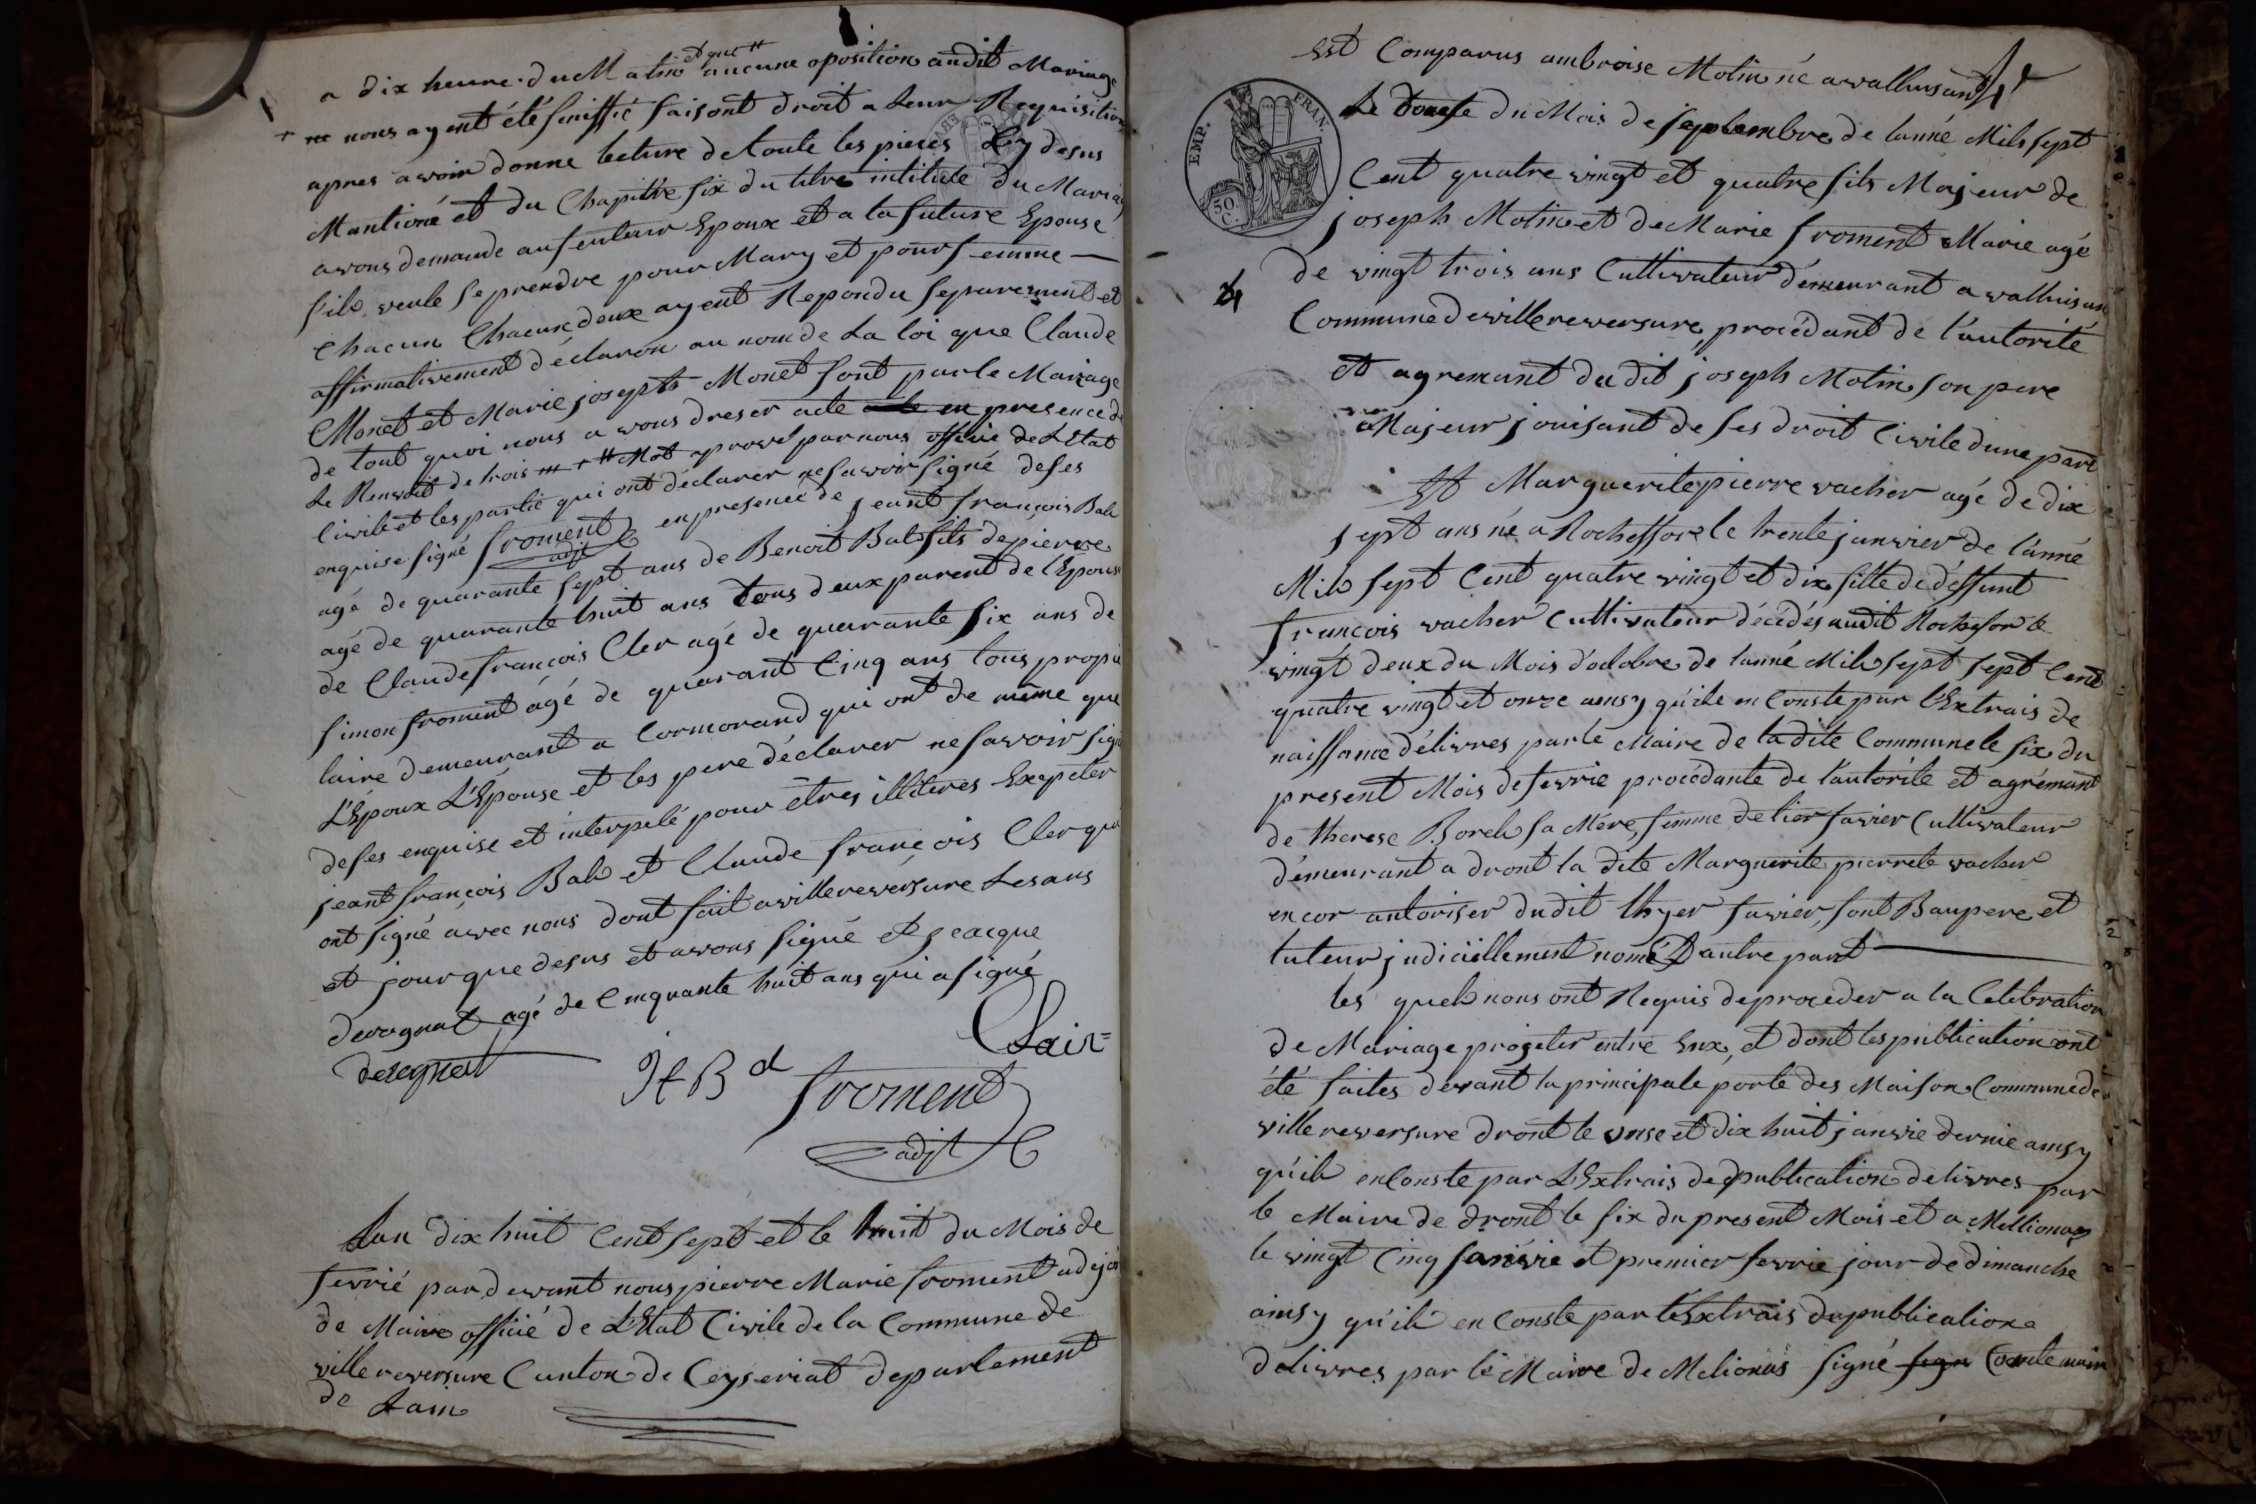 a dix heure du Matin et que # aucune oposition audit Mariage
+ ne nous ayent été siniffié faisont droit a leur Requisition
apres avoir donne lecture de toute les pieces Cy desus
Mantioné et du Chapitre six du titre intitule du Mariag
avons demande au futeur Epoux et a la future Epouse
sils veule se prendre pour Mary et pour femme
chacun Chacun deux ayent Repondu separement et
affirmativement déclaron au nom de La loi que Claude
Monet et Marie josepts Monet sont par le Mariage
de tout quoi nous avons dreser acte en presence de
Le Renvoit de trois Mot aprové par nous officié de L'Etat
Civile et les partie qui ont déclarer ne savoir signé de ses
enquise signé froment adjt en presence de jeant françois Bab
agé de quarante sept ans de Benoit Bab fils de pierre
agé de quarante huit ans tous deux parent de l'Epouse
de Claude françois Cler agé de quarante six ans de
simon froment agé de quarant Cinq ans tous propié
taire demeurant a Cormorand qui ont de même que
L'Epoux L'Epouse et les pere déclarer ne savoir signé
de ses enquise et interpelé pour êtres illiteres Exepeter
jeant françois Bab et Claude françois Cler qui
ont signé avec nous dont fait a villereversure Les ans
et jour que desus et avons signé et jeacque
deragnat agé de Cinquante huit ans qui a signé
deragnat
Jf B d
Clair
froment
adjt
Lan dix huit Cent sept et le huit du Mois de
fevrié par devant nous pierre Marie froment adjoi
de Maire officié de L'Etat Civile de la Commune de
villereversure Canton de Ceyseriat departement
de Lain
Est Comparus ambroise Molin né a valhusant
EMP. FRAN.
50 C.
Le douse du Mois de septembre de lanné Mils sept
Cent quatre vingt et quatre fils Majeur de
joseph Molin et de Marie froment Marie agé
de vingt trois ans Cultivateur demeurant a valhusan
Commune de villereversure, procédant de l'autorité
et agremant du dit joseph Molin son pere
Majeur jouisant de ses droit Civile dune part
Et Marguerite pierre vacher agé de dix
sept ans né a Rocheffort le trente janvier de l'anné
Mils sept Cent quatre vingt et dix fille de deffunt
françois vacher Cultivateur décédés audit Rochefor le
vingt deux du Mois d'octobre de lanné Mils sept sept Cent
quatre vingt et onze ainsy qu'ile en Conste par l'Extrais de
naissance délivres par le Maire de la dite Commune le six du
present Mois de fevrie procédante de l'autorite et agrémant
de therese Borel sa Mére, femme de lier favier Cultivateur
démeurant a dront la dite Marguerite pierrete vacher
encor autoriser dudit thyer favier, sont Baupere et
tuteur judiciellement nomé D'autre part
les quels nous ont Requis de proceder a la Celebration
de Mariage projeter entre Eux, et dont les publication ont
été faites devant la principale porte des Maison Commune de
villereversure dront le onse et dix huit janvie dernie ainsy
qu'ils en Conste par L'Extrais de publication delivres par
le Maire de dront le six du present Mois et a Mellionas
le vingt Cinq janvie et premier fevrie jour de dimanche
ainsy qu'ils en Conste par l'Extrais de publication
délivres par le Maire de Melionas signé